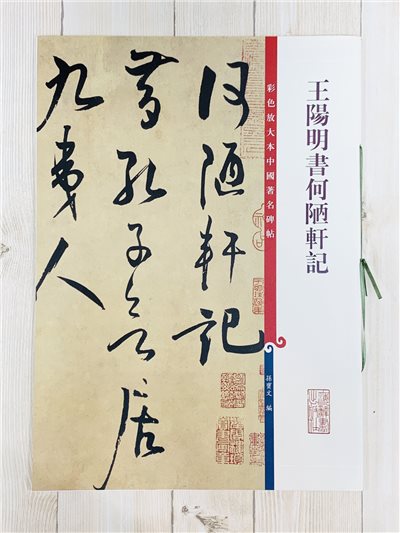 王陽明書何陋軒記
彩色放大本中國著名碑帖
孫寶文 編
何陋軒記
昔孔子欲居
九夷人